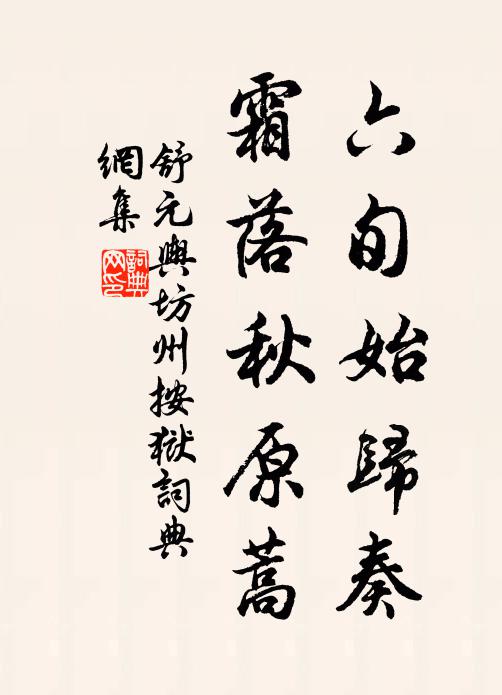 六旬始歸奏
霜落秋原蒿
舒元輿坊州按獄詞典
網集
詞典網印